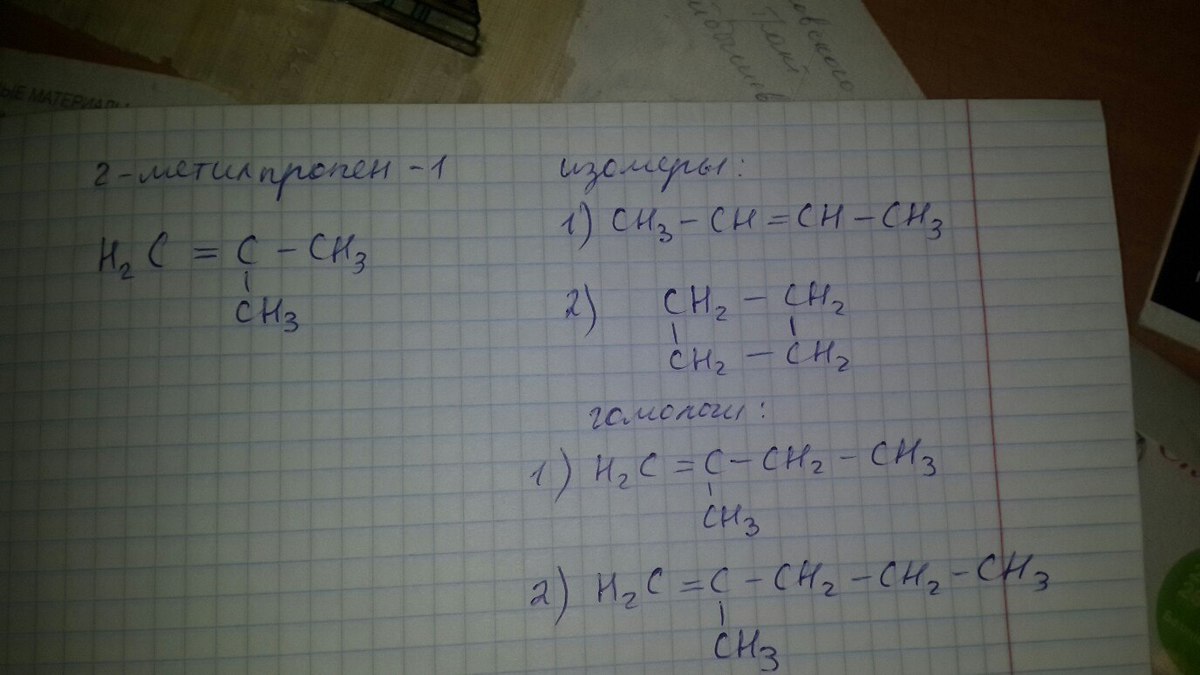 ЫЕ МАТЕРИАЛЫ
2-метилпропен-1
H₂C = C – CH₃
CH₃
изомеры:
1) CH₃ – CH = CH – CH₃
2) CH₂ – CH₂
CH₂ – CH₂
гомологи:
1) H₂C = C – CH₂ – CH₃
CH₃
2) H₂C = C – CH₂ – CH₂ – CH₃
CH₃